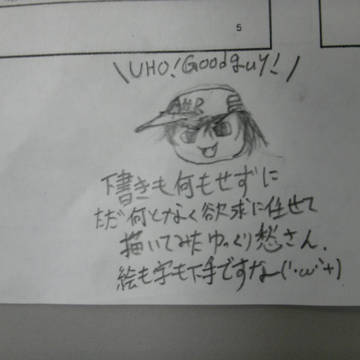 5
\UHO! Good guy!/
下書きも何もせずに
ただ何となく欲求に任せて
描いてみたゆっくり愁さん.
絵も字も下手ですなー(´･ω･`+)